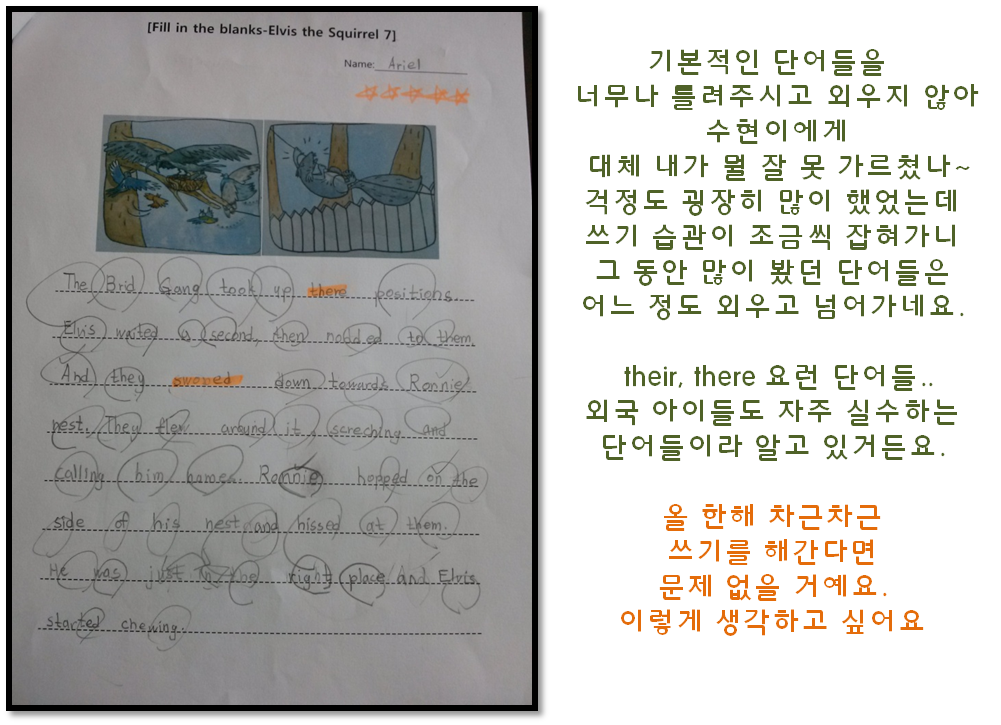 [Fill in the blanks-Elvis the Squirrel 7]
Name: Ariel
The Brid Gang took up there positions.
Elvis waited a second, then nodded to them.
And they swoped down towards Ronnie
nest. They flew around it, screching and
calling him names. Ronnie hopped on the
side of his nest and hissed at them.
He was just in the right place and Elvis
started chewing.
기본적인 단어들을
너무나 틀려주시고 외우지 않아
수현이에게
대체 내가 뭘 잘 못 가르쳤나~
걱정도 굉장히 많이 했었는데
쓰기 습관이 조금씩 잡혀가니
그 동안 많이 봤던 단어들은
어느 정도 외우고 넘어가네요.
their, there 요런 단어들..
외국 아이들도 자주 실수하는
단어들이라 알고 있거든요.
올 한해 차근차근
쓰기를 해간다면
문제 없을 거예요.
이렇게 생각하고 싶어요